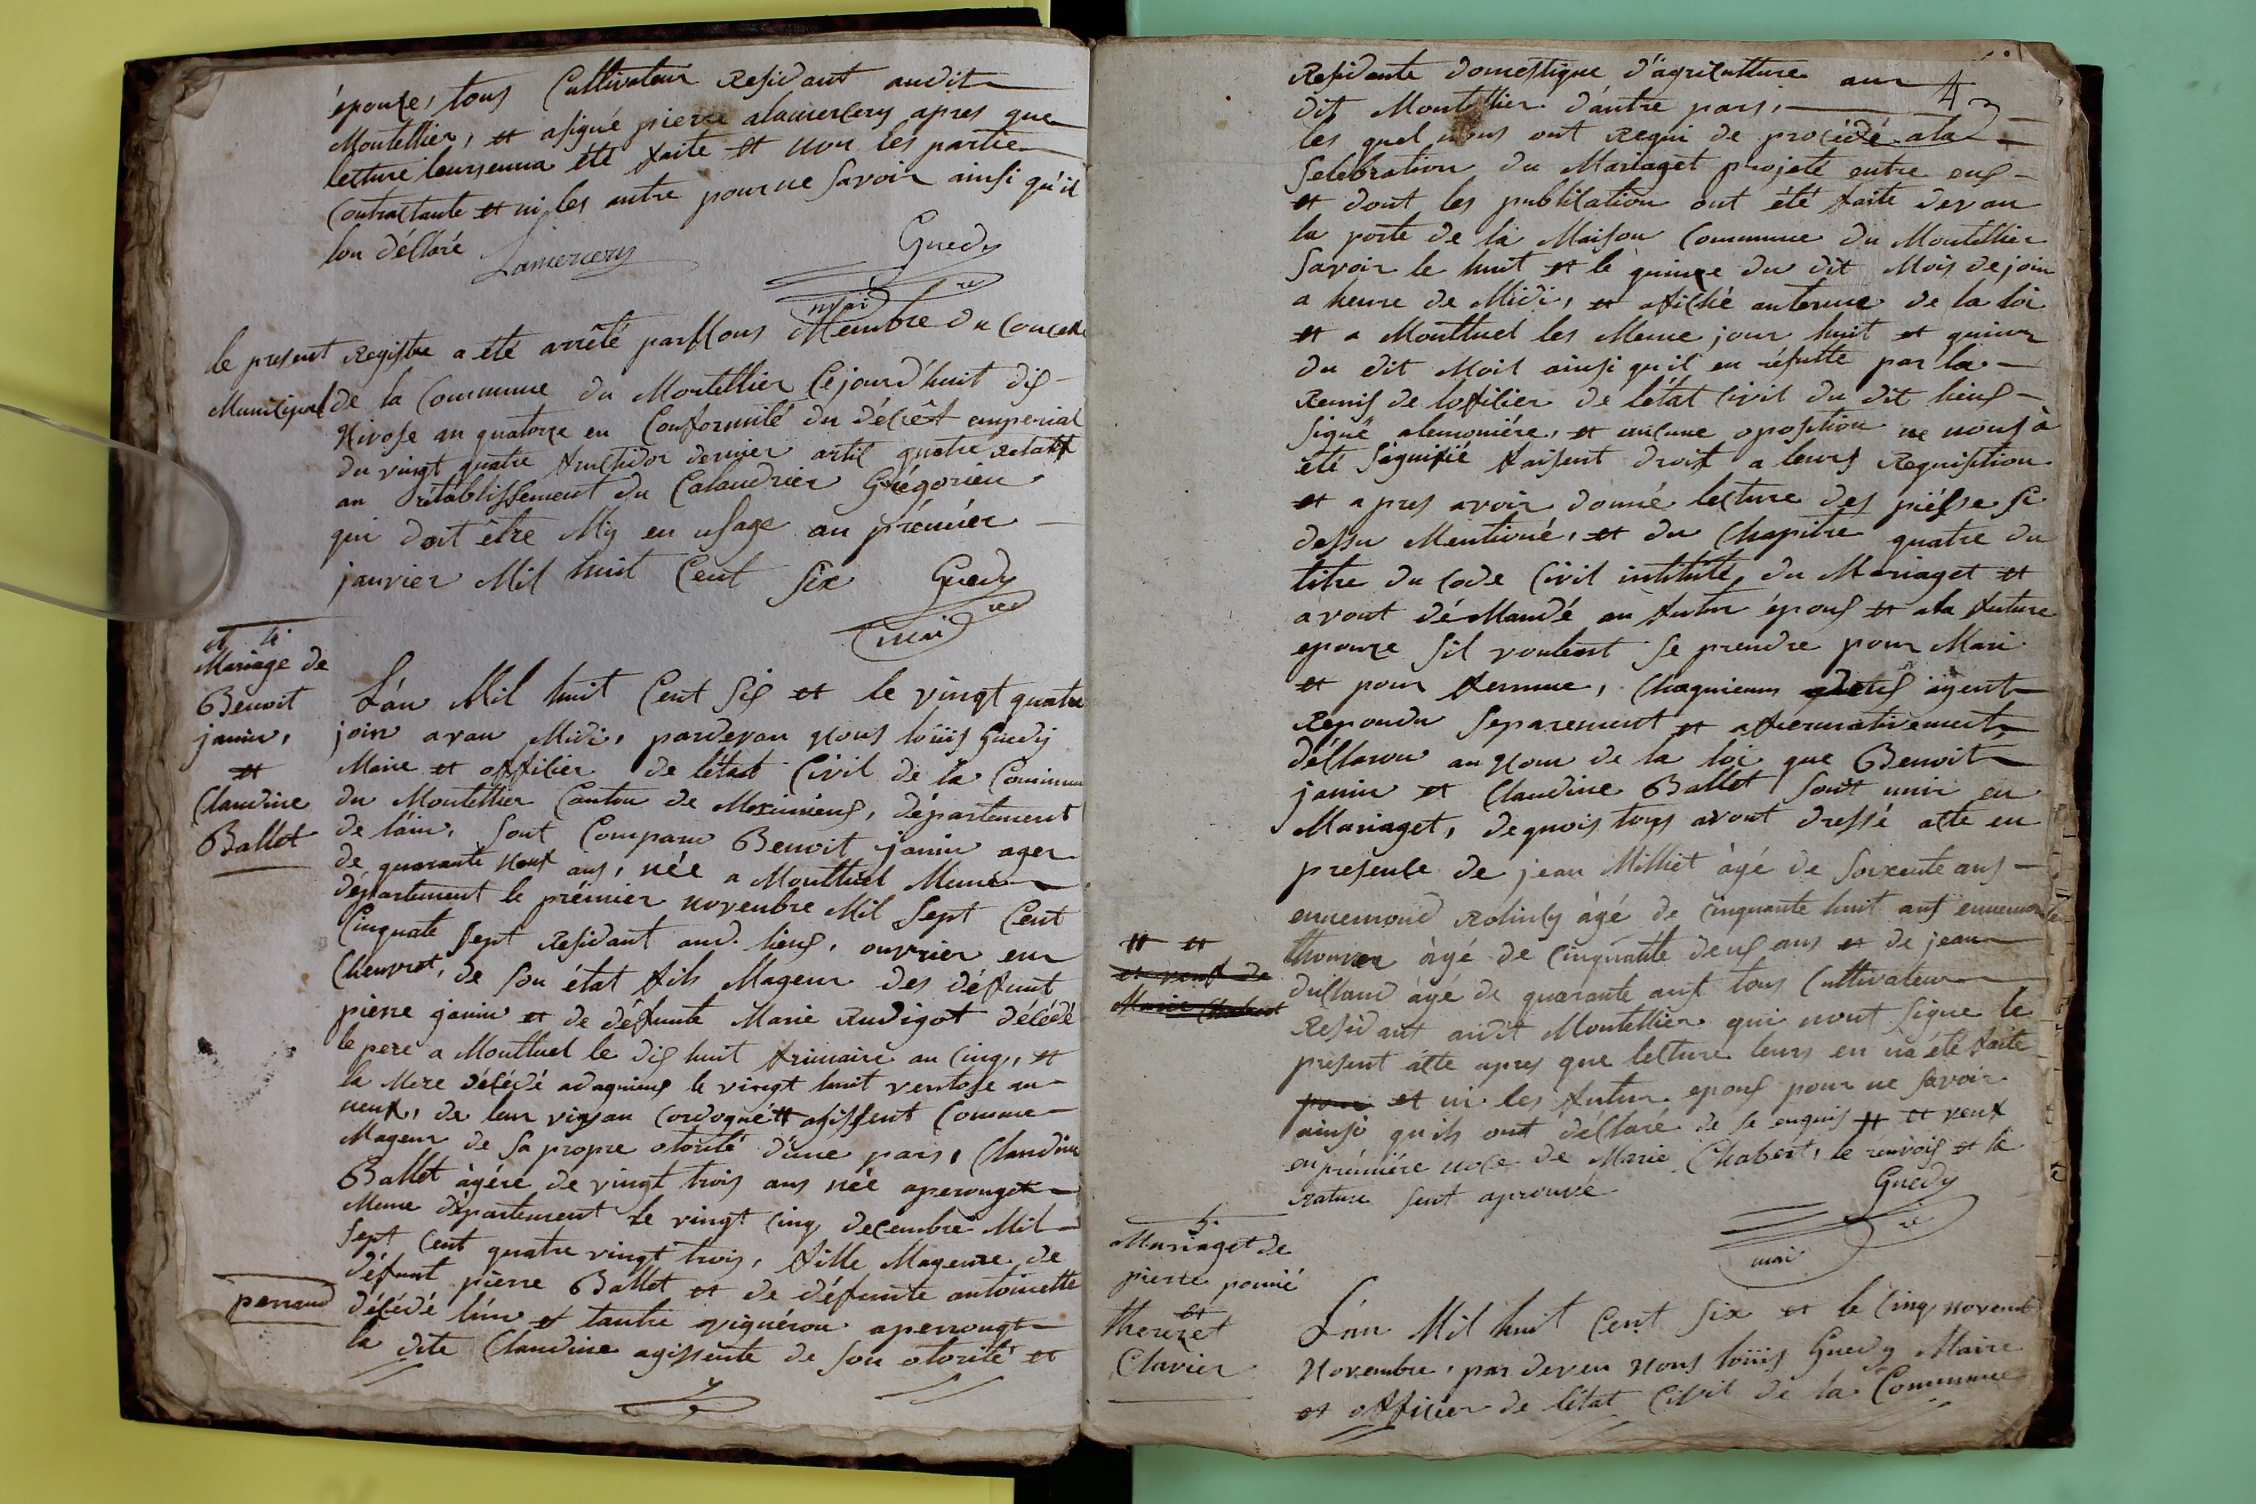 épouse, tous Cultivateur Residant audit
Montellier, et asigné pierre alamercery apres que
lecture leursenna été faite et non les partie
Contractante et ni les autre pour ne Savoir ainsi qu'il
lon déclaré
Lamercery
Guedy
maire
le present Registre a été arrêté par Nous Membre du Conceil
Municipal de la Commune du Montellier Cejourd'huit dix
Nivose an quatorze en Conformité du décrêt emperial
du vingt quatre fructidor dernier artil quatre Relatif
au rétablissement du Calandrier Grégorien
qui doit être Mis en usage au prémiér
janvier Mil huit Cent Six
Guedy
maire
N 4.
Mariage de
Benoit
janin,
et
Claudine
Ballet
L'an Mil huit Cent Six et le vingt quatre
join avan Midi, pardevan Nous loüis Guedy
Maire et offilier de létat Civil de la Commune
du Montellier Canton de Meximieux, département
de láin, Sont Comparu Benoit janin ager
de quarante neuf ans, née a Montluel Meme
département le prémier novembre Mil Sept Cent
Cinquate Sept Residant aud. lieux, ouvrier en
Chenvret, de Son état fils Mageur des défunt
pierre janin et de défunte Marie Rudigot décédé
le pere a Montluel le dix huit frimaire an Cinq, et
la Mere décédé adagnieux le vingt huit ventose an
neuf, de leur vivan Cordogné # agissent Comme
Mageur de Sa propre otorité d'une pars, Claudine
Ballet àgére de vingt trois ans née aperouget
Meme département le vingt Cinq decembre Mil
Sept Cent quatre vingt trois, fille Mageure de
défunt pierre Ballet et de défunte antoinette
perraud
décédé lún et lautre vignérou aperrougt
la dite Claudine agissente de Son otorité et
4
Residante domestique d'agriculture au
dit Montellier d'autre pars,
les quel nous ont Requi de procédé ala
Selebration du Mariaget projeté entre eux
et dont les publication ont été faite devan
la porte de la Maison Commune du Montellier
Savoir le huit et le quinze du dit Mois de join
a heure de Midi, et afiché anterme de la loi
et a Montluel les Meme jour huit et quinze
du dit Mois ainsi qu'il en résulte par la
Remis de loffilier de létat Civil du dit lieux
Signé alemoniére, et aucune oposition ne nous à
été Signifié faisent droit a leurs Requisition
et apres avoir donné lecture des piésse Si
dessu Mentioné, et du Chapitre quatre du
titre du Code Civil intitulé, du Mariaget et
avont déMandé au futur époux et ala future
epouze Sil voulent Se prendre pour Mari
et pour femme, Chaquieum deux àyent
Repondu Séparement et affermativement
déclaron au Nom de la loi que Benoit
janin et Claudine Ballet Sont unir en
Mariaget, dequois tous avont dressé atte en
presense de jean Milliet àgé de Soixente ans
ennemond Rolinly àgé de Cinquante huit ans ennemond
thonier àgé de Cinquante deux ans et de jean
dullaud àgé de quarante anf tous Cultivateur
Residant audit Montellier qui nont Signe le
présent atte apres que lecture leurs en na été faite
pour et ni les futur epoux pour ne Savoir
ainsi qu'ils ont déclaré de Se enquis # et veuf
en prémiére noce de Marie Chabert, le renvois et la
rature Sent aprouvé
Guedy
maire
# et
et veuf de
Marie Chabert
5.
Mariaget de
pierre pormié
et
therezet
Clavier
L'an Mil huit Cent Six et le Cinq novemb
Novembre, par devan Nous loüis Guedy Maire
et officier de létat Civil de la Commune